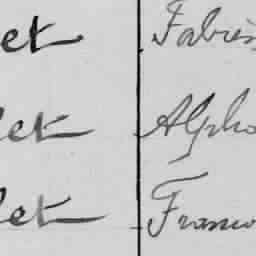 et Fabie
let Alpho
let Franco